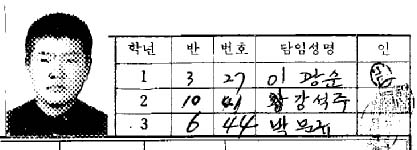 학년 반 번호 담임성명 인
1 3 27 이광순
2 10 41 강석주
3 6 44 박